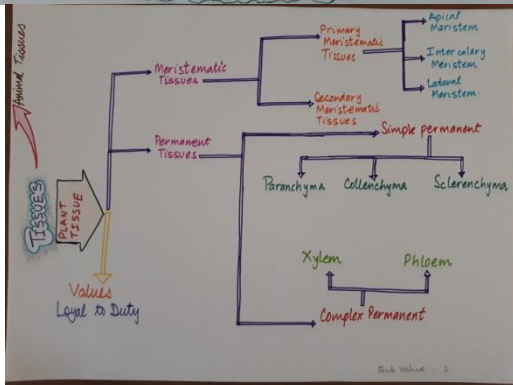 Animal Tissues
TISSUES
PLANT
TISSUE
Meristematic
Tissues
Primary
Meristematic
Tissues
Apical
Meristem
Intercalary
Meristem
Lateral
Meristem.
Secondary
Meristematic
Tissues
Permanent
Tissues
Simple permanent
Paranchyma
Collenchyma
Sclerenchyma
Xylem
Phloem
Complex Permanent
Values
Loyal to Duty
Sub Value - 2